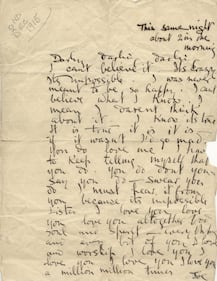 2ND
DEC
1916
This same night
about 2 in the
morning
Darling darling darling
I can't believe it Its
Its impossible I was never
meant to be so happy. I can't
believe what I know. I
mean I daren't think
about it. I know its true
It is true if it is
if it wasn't I'd go mad
You do love me I have
to keep telling myself that
you do. you do don't you
Say you do – Swear you
do I must hear it from
you because its impossible
I love you I love
you I love you altogether body
and soul and spirit every
and every bit of you I love
and worship I love you I
love you I love you I love you
a million million times
Joe